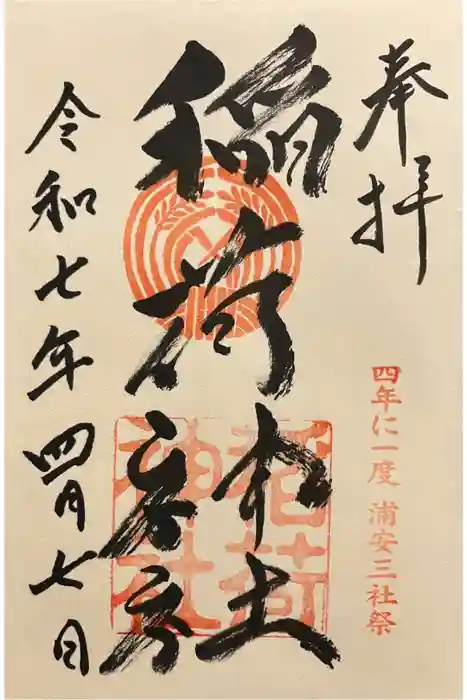 奉拝
四年に一度 浦安三社祭
稲荷
稲荷
神社
令和七年四月七日